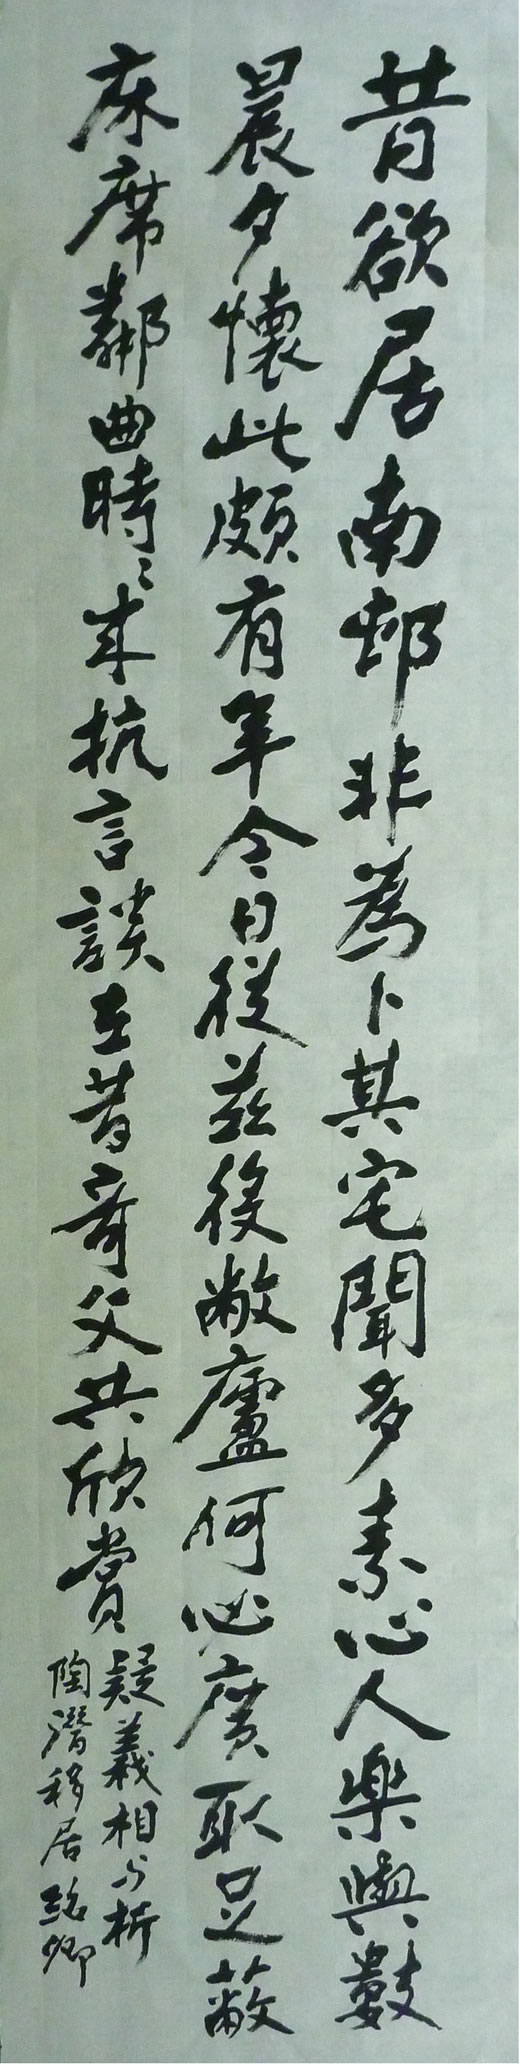 昔欲居南邨非為卜其宅聞多素心人樂與數
晨夕懷此頗有年今日從茲役敝廬何必廣取足蔽
床席鄰曲時〻来抗言談在昔奇文共欣賞
疑義相与析
陶潛移居 卿